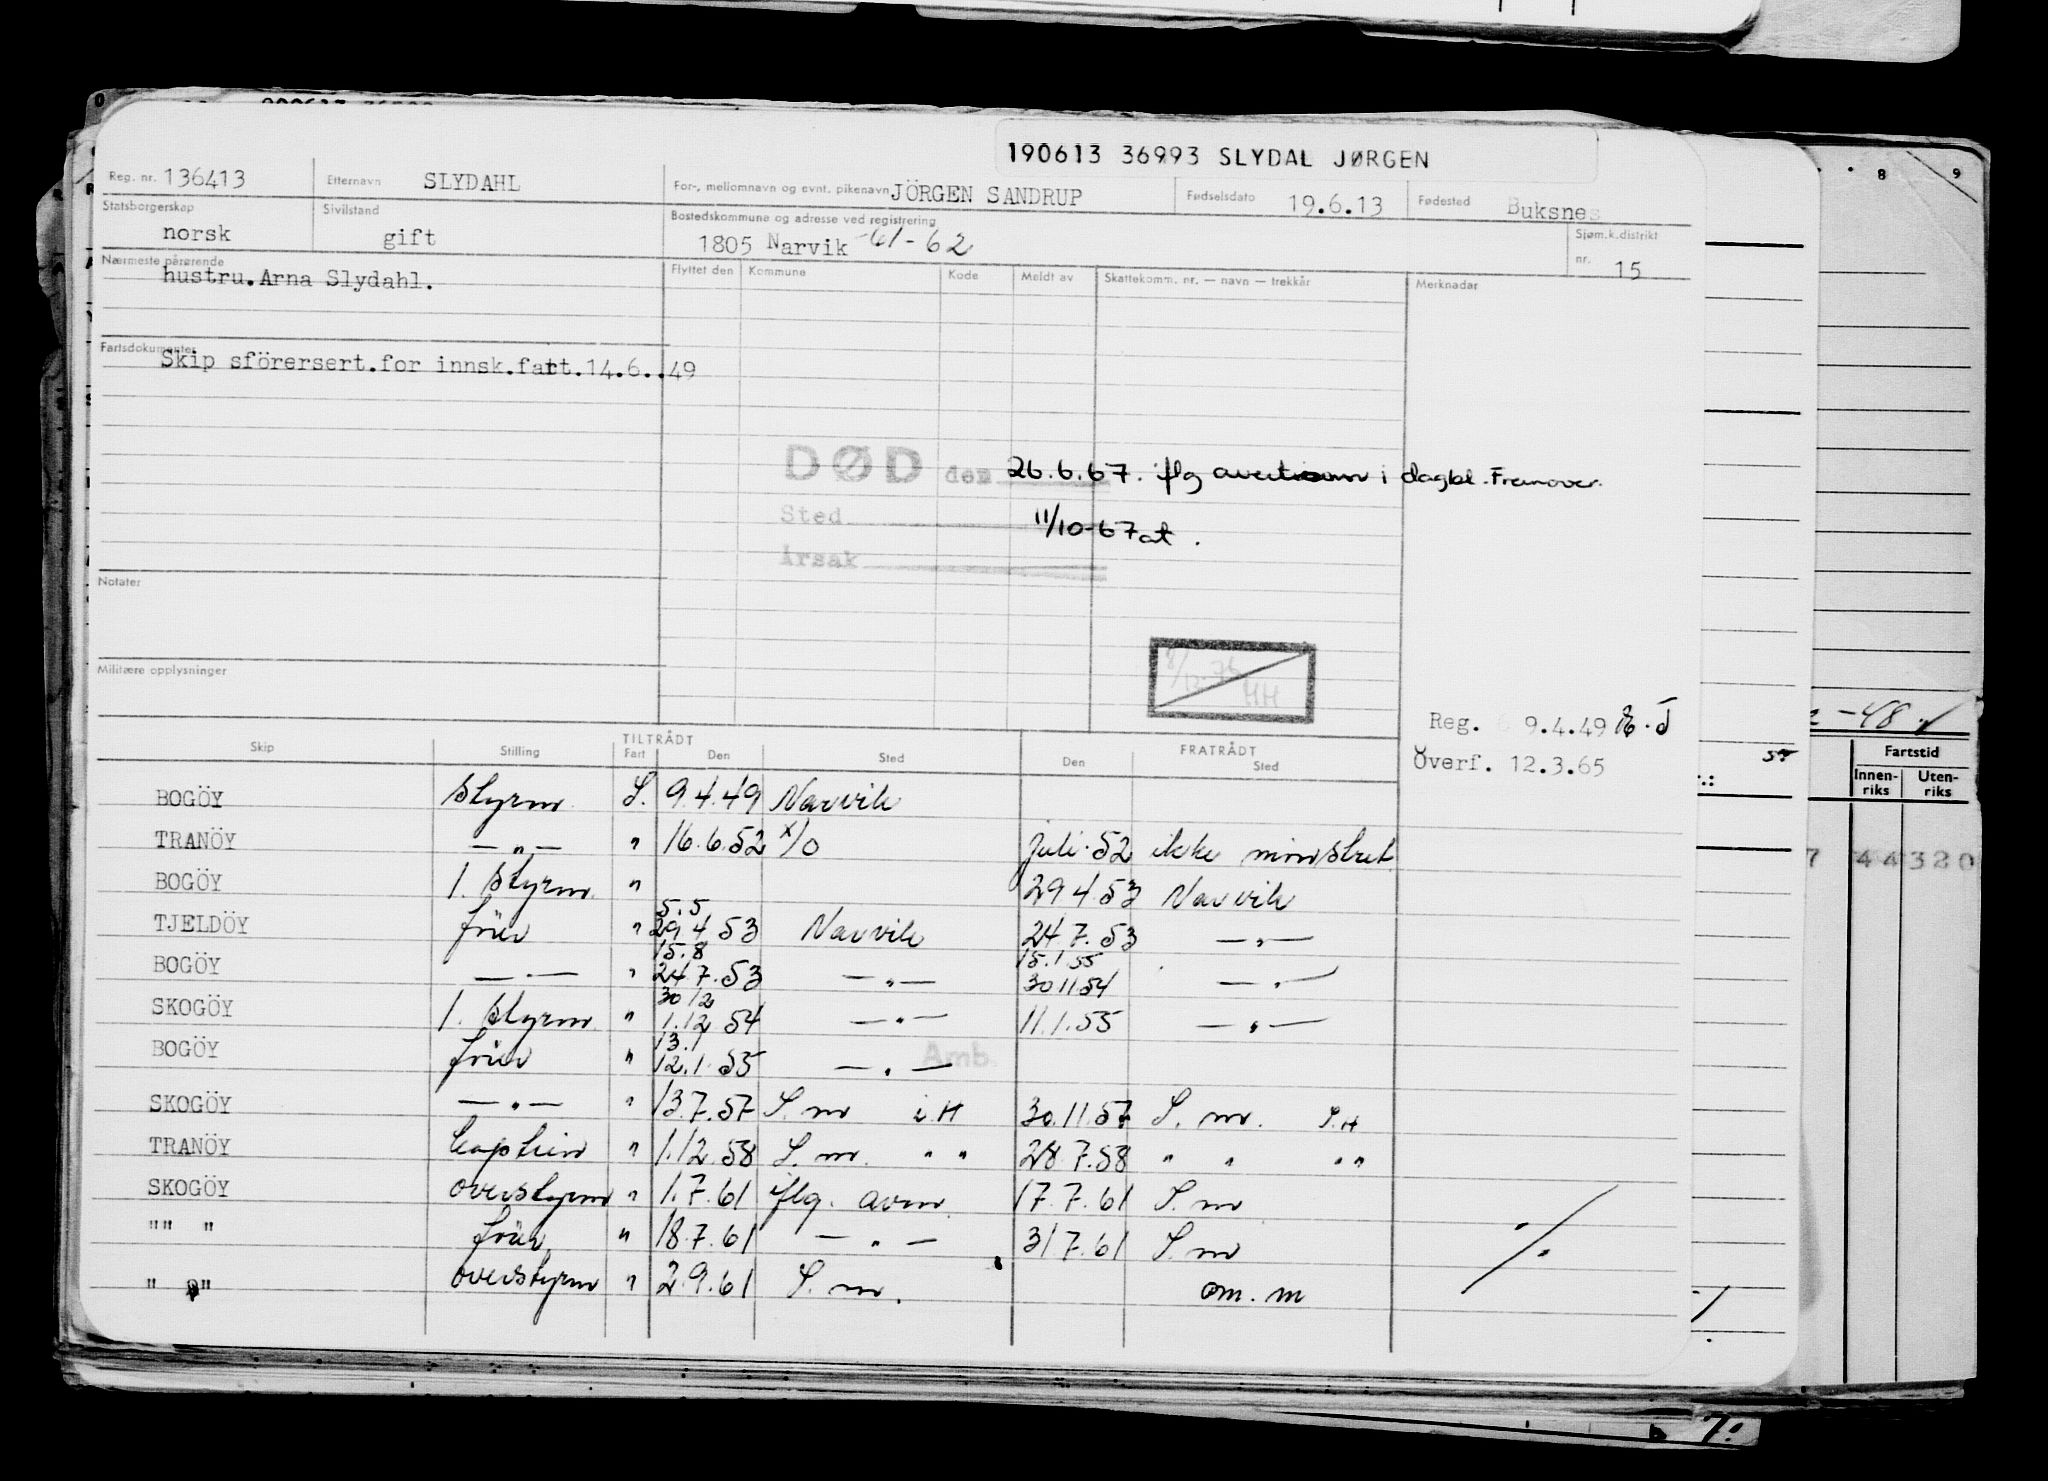 190613 36993 SLYDAL JØRGEN
Reg. nr. 136413 Etternavn SLYDAHL For-, mellomnavn og evnt. pikenavn JÖRGEN SANDRUP Fødselsdato 19.6.13 Fødested Buksnes
Statsborgerskap norsk Sivilstand gift Bostedskommune og adresse ved registrering 1805 Narvik -61-62 Sjøm.k.distrikt nr. 15
Nærmeste pårørende Flyttet den Kommune Kode Meldt av Skattekomm. nr. — navn — trekkår Merknader
hustru.Arna Slydahl.
Fartsdokumenter
Skip sförersert.for innsk.fart.14.6..49
DØD den 26.6.67. iflg i dagbl. Fremover.
Sted 11/10-67 at.
Årsak
Notater
Militære opplysninger
HH
Reg. 9.4.49
Överf. 12.3.65
TILTRÅDT FRATRÅDT
Skip Stilling Fart Den Sted Den Sted
BOGÖY Styrm. L. 9.4.49 Narvik
TRANÖY —"— " 16.6.52 x/o juli.52 ikke mönstret
BOGÖY 1. Styrm. " 29 4.53 Narvik
5.5
TJELDÖY förer " 29 4 53 Narvik 24 7. 53 —"—
15.8 15.1.55
BOGÖY — — " 24.7.53 —"— 30 11 54 —"—
30 12
SKOGÖY 1. Styrm. " 1.12 54 —"— 11.1.55 —"—
13.1
BOGÖY förer " 12.1.55 —"— Amb.
SKOGÖY —"— " 13.7.57 S.m i.H 30.11.57 S.m. S.H
TRANÖY Captein " 1.12.58 S.m. " " 28 7.58 " " " "
SKOGÖY overstyrm " 1.7.61 iflg. avm. 17.7.61 S.m
"" " förer " 18.7.61 —"— 31 7.61 S.m
" " overstyrm " 2.9.61 S.m. om. m
8 9
-48
Fartstid
Innen-riks Uten-riks
7 44320